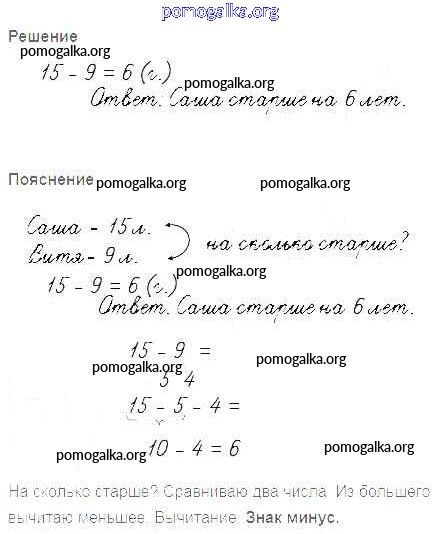 pomogalka.org
Решение
pomogalka.org
15 - 9 = 6 (г.)
pomogalka.org
Ответ: Саша старше на 6 лет.
Пояснение
pomogalka.org
pomogalka.org
Саша - 15 л.
на сколько старше?
Витя - 9 л.
pomogalka.org
15 - 9 = 6 (г.)
Ответ: Саша старше на 6 лет.
15 - 9 =
pomogalka.org
pomogalka.org
5 4
15 - 5 - 4 =
10 - 4 = 6
pomogalka.org
pomogalka.org
На сколько старше? Сравниваю два числа. Из большего
вычитаю меньшее. Вычитание. Знак минус.